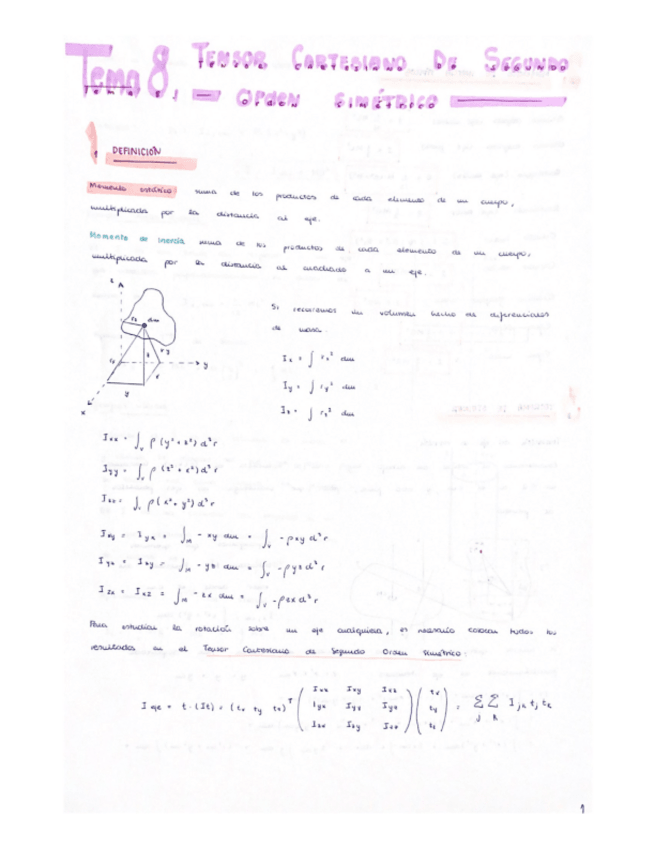 Tema 8.- TENSOR CARTESIANO DE SEGUNDO
ORDEN SIMÉTRICO
1 DEFINICIÓN
Momento estático suma de los productos de cada elemento de un cuerpo,
multiplicada por la distancia al eje.
Momento de inercia suma de los productos de cada elemento de un cuerpo,
multiplicada por la distancia al cuadrado a un eje.
z
dm
y
x
Si recorremos un volumen hecho de diferenciales
de masa.
Ix = ∫ rx² dm
Iy = ∫ ry² dm
Iz = ∫ rz² dm
Ixx = ∫v ρ (y² + z²) d³r
Iyy = ∫v ρ (z² + x²) d³r
Izz = ∫v ρ (x² + y²) d³r
Ixy = Iyx = ∫M - xy dm = ∫v - ρxy d³r
Iyz = Izy = ∫M - yz dm = ∫v - ρyz d³r
Izx = Ixz = ∫M - zx dm = ∫v - ρzx d³r
Para estudiar la rotación sobre un eje cualquiera, es necesario colocar todos los
resultados en el Tensor Cartesiano de Segundo Orden Simétrico:
I eje = t · (It) = (tx ty tz)ᵀ ( Ixx Ixy Ixz ) ( tx ) = Σ Σ Ijk tj tk
Iyx Iyy Iyz ty j k
Izx Izy Izz tz
1